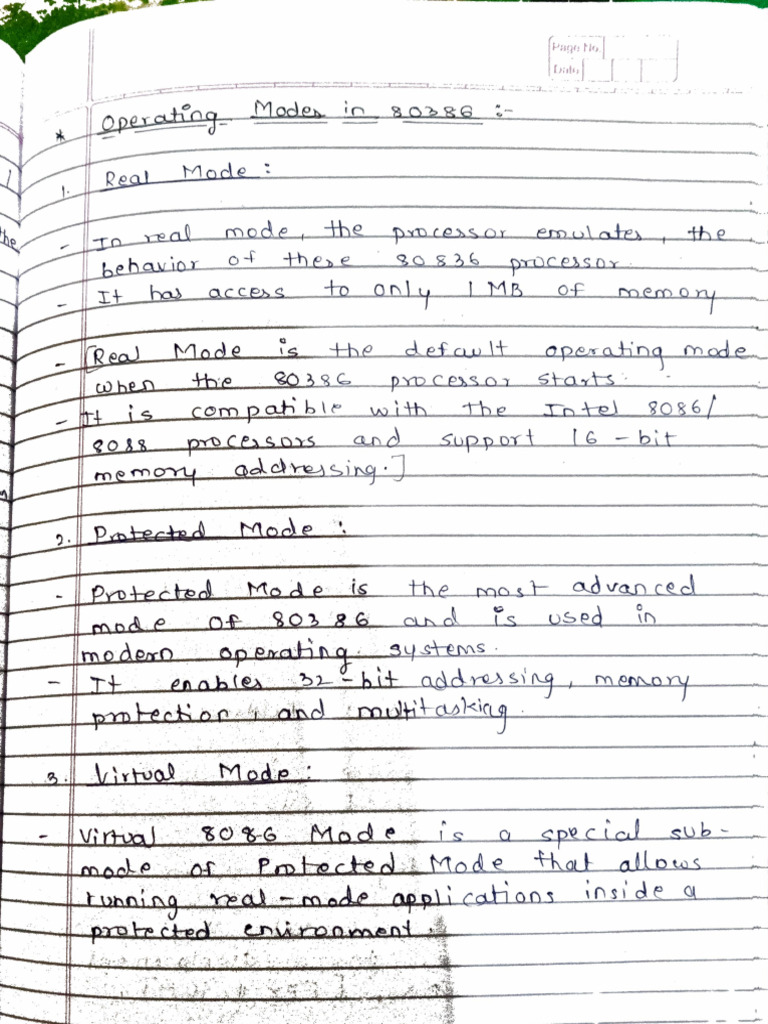 Page No.
Date
* Operating Modes in 80386 :-
1. Real Mode :
- In real mode, the processor emulates, the
behavior of these 80836 processor.
- It has access to only 1 MB of memory
- [Real Mode is the default operating mode
when the 80386 processor starts.
- It is compatible with the Intel 8086/
8088 processors and support 16-bit
memory addressing.]
2. Protected Mode :
- Protected Mode is the most advanced
mode of 80386 and is used in
modern operating systems.
- It enables 32-bit addressing, memory
protection, and multitasking.
3. Virtual Mode :
- Virtual 8086 Mode is a special sub-
mode of Protected Mode that allows
running real-mode applications inside a
protected environment.